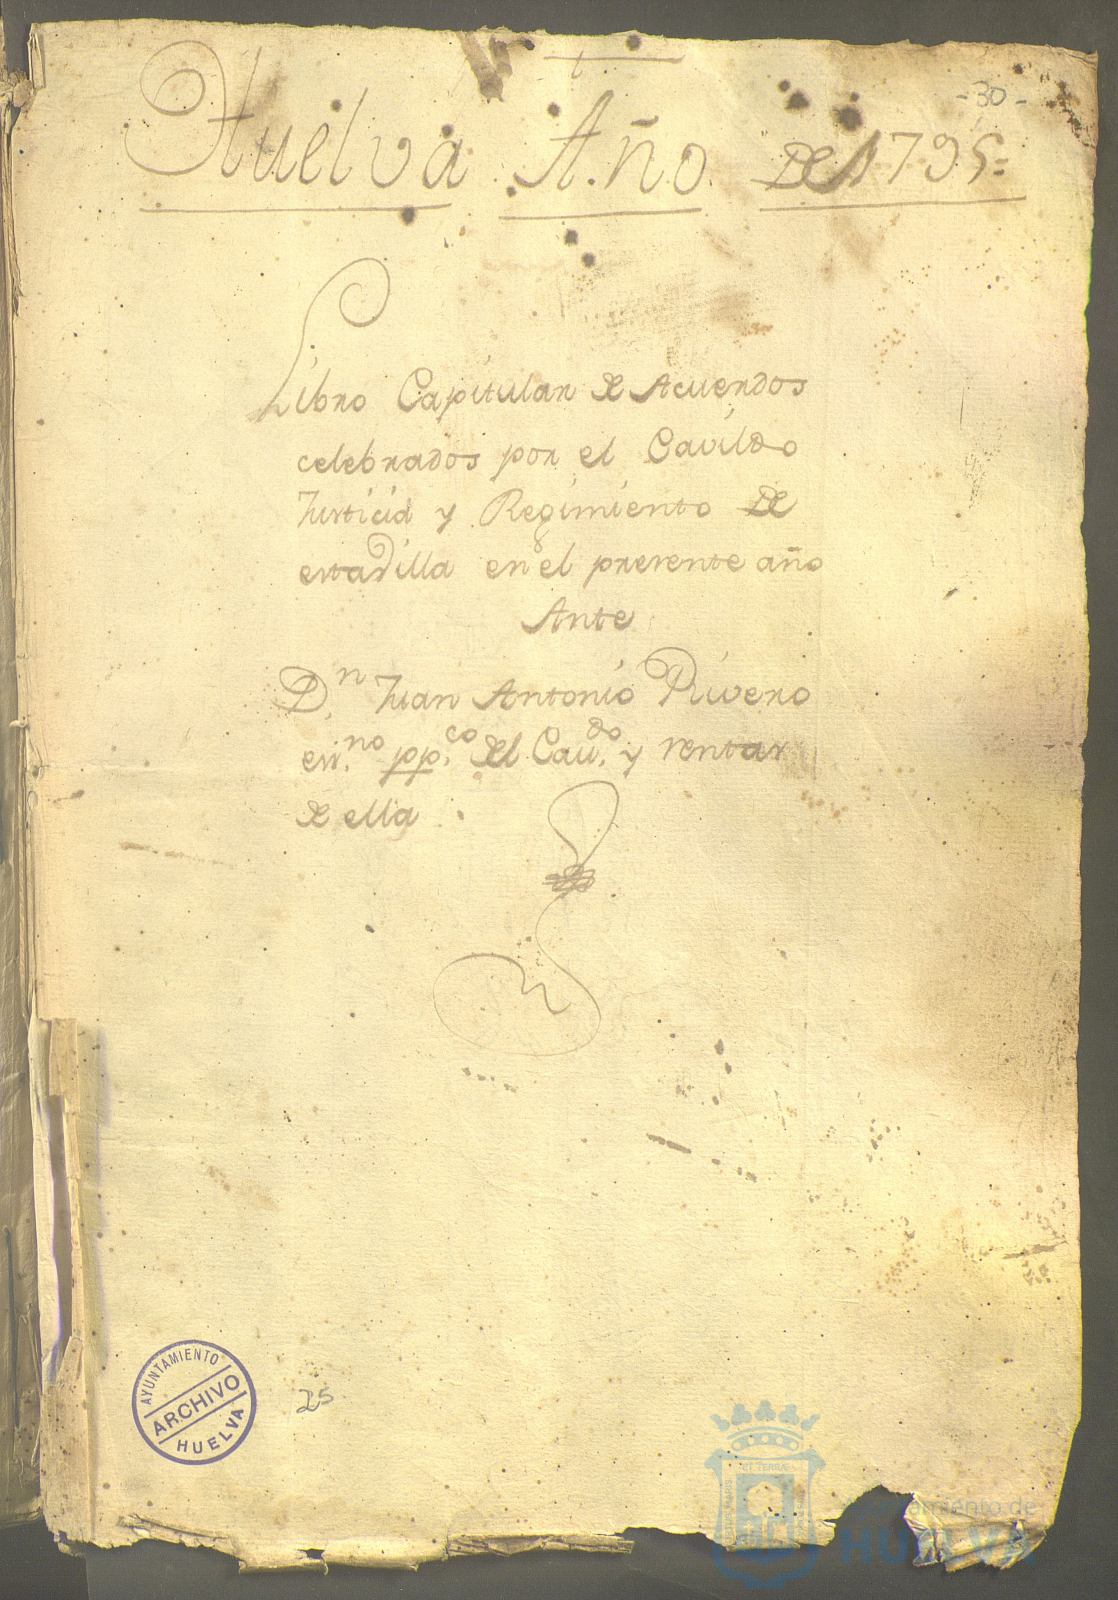 -30-
Huelva Año de 1795=
Libro Capitular de Acuerdos
celebrados por el Cavildo
Justicia y Regimiento de
esta villa en el presente año
Ante
D.n Juan Antonio Rivero
es.no pp.co del Cav.do y rentas
de ella
AYUNTAMIENTO
ARCHIVO
HUELVA
25
Ayuntamiento de
HUELVA